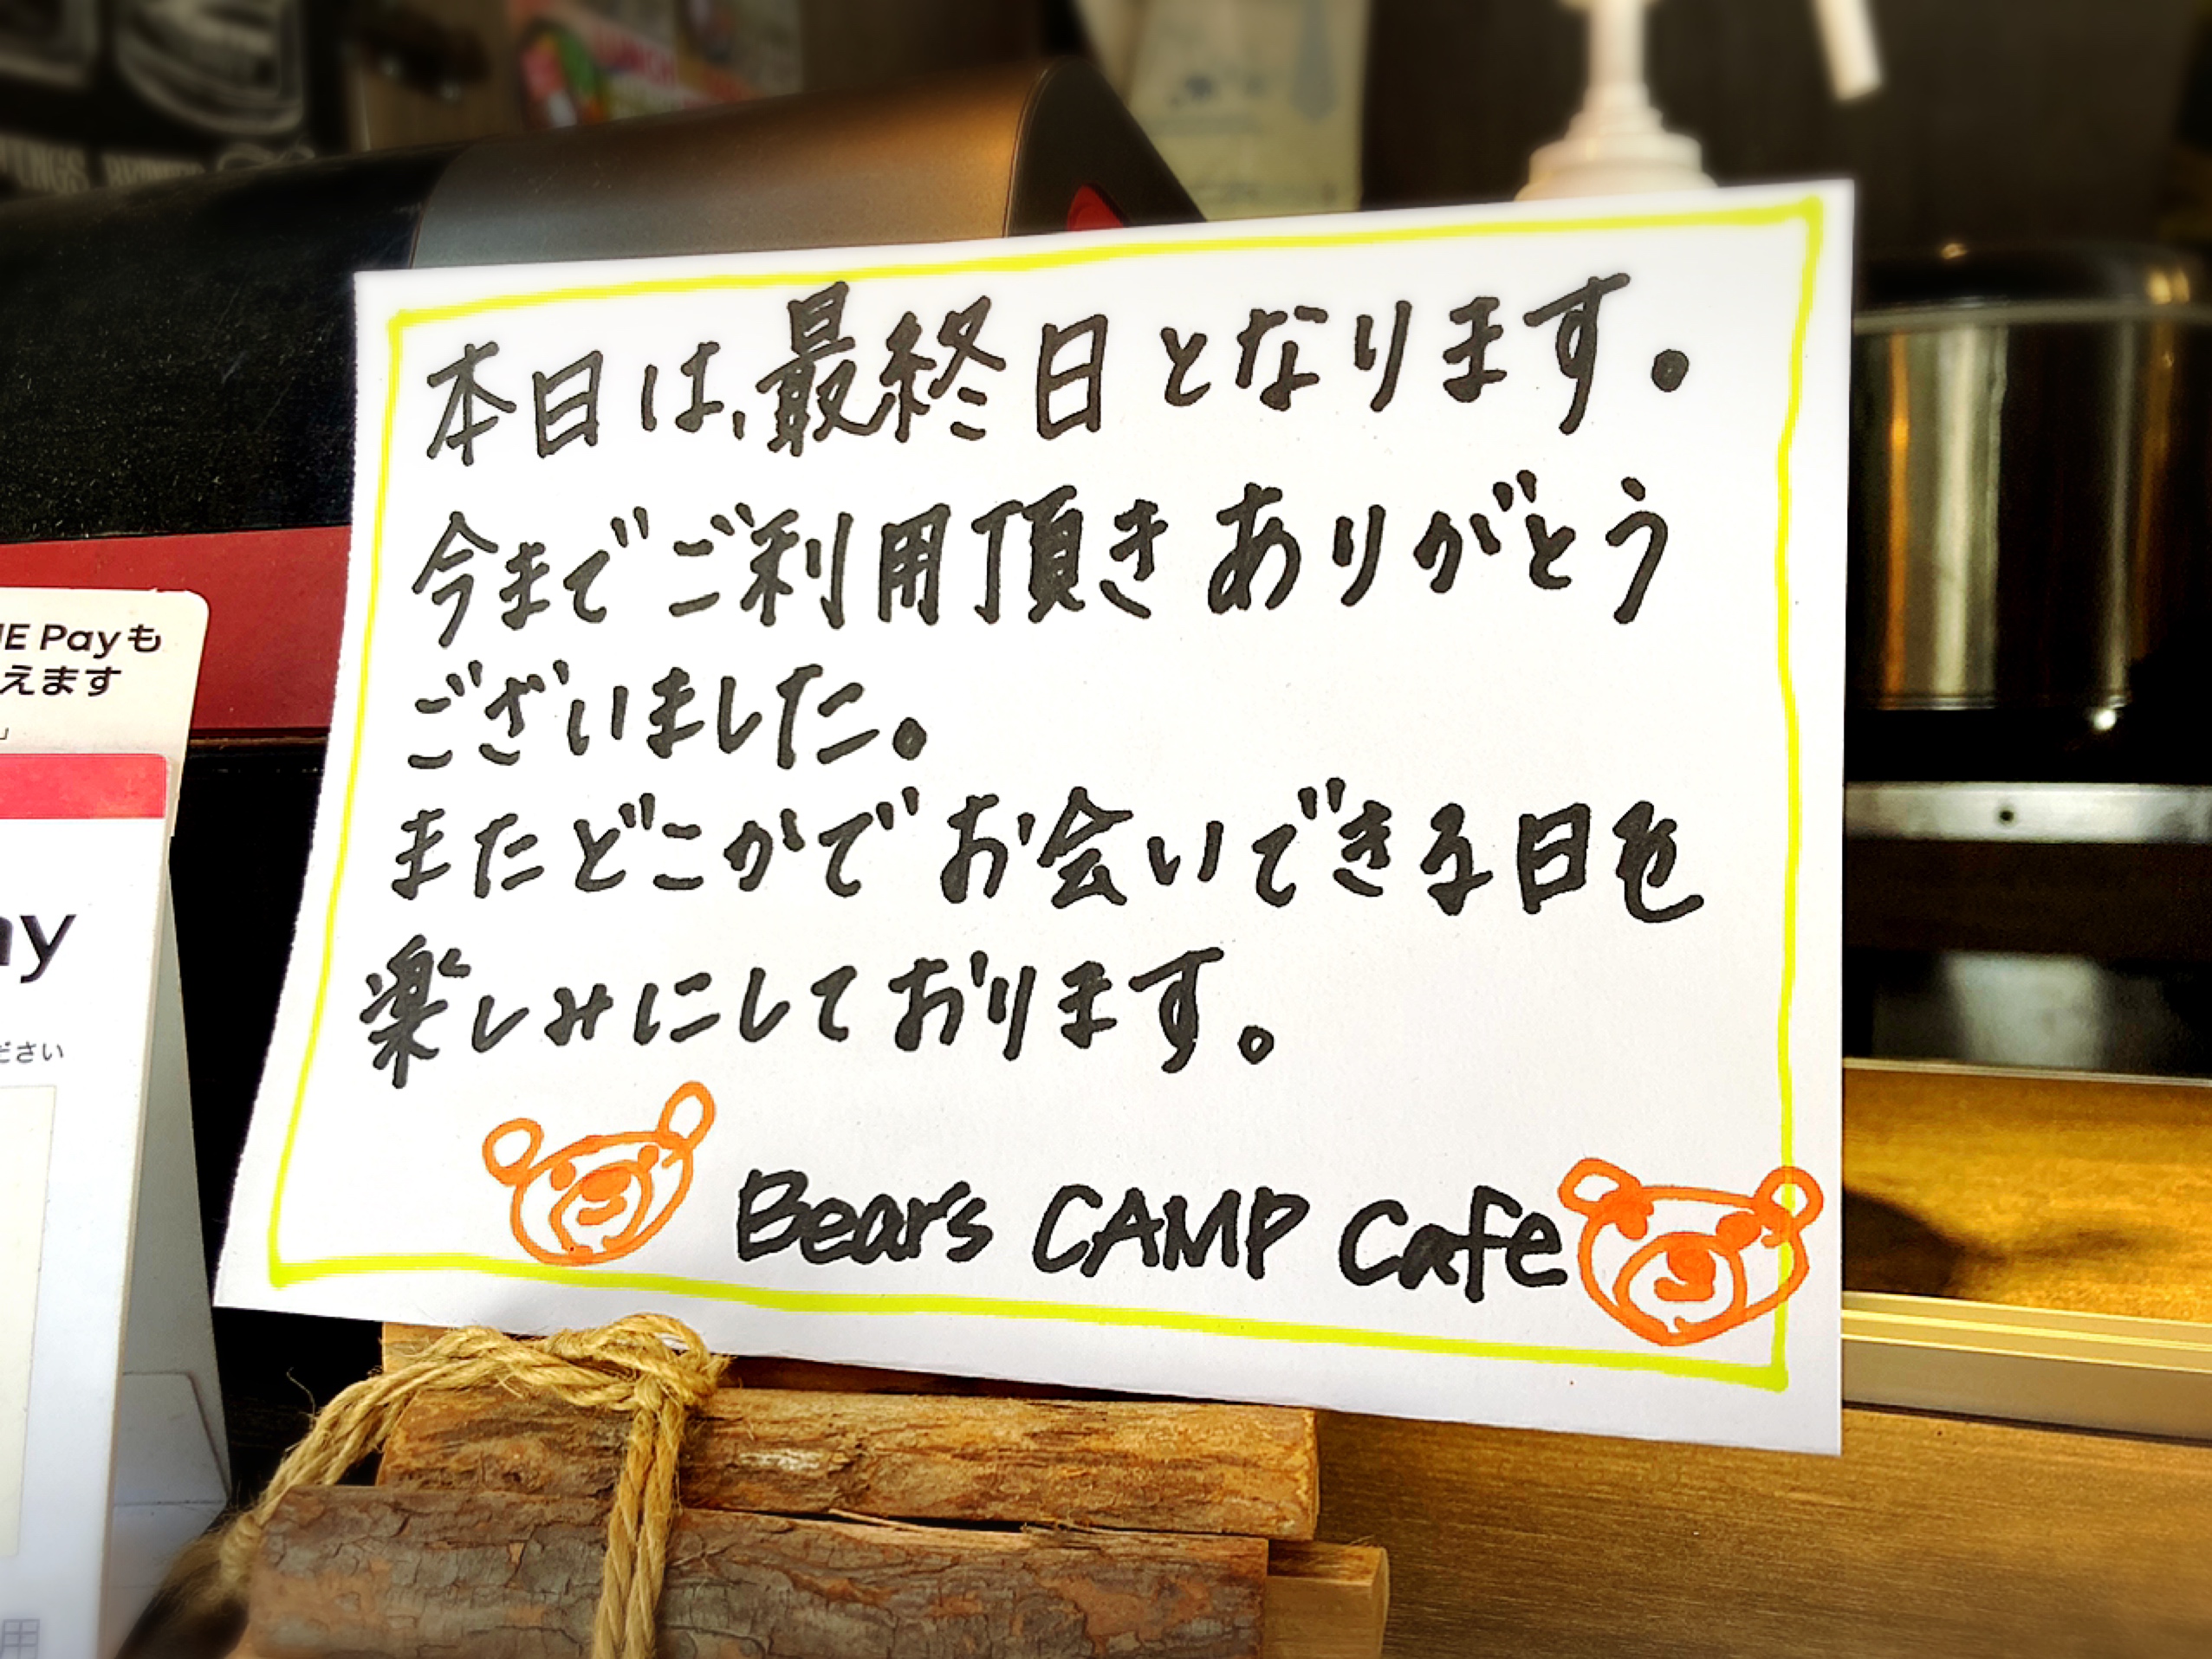 本日は、最終日となります。
今までご利用頂きありがとう
ございました。
またどこかでお会いできる日を
楽しみにしております。
Bears CAMP Cafe
E Payも
えます
ay
ださい
用